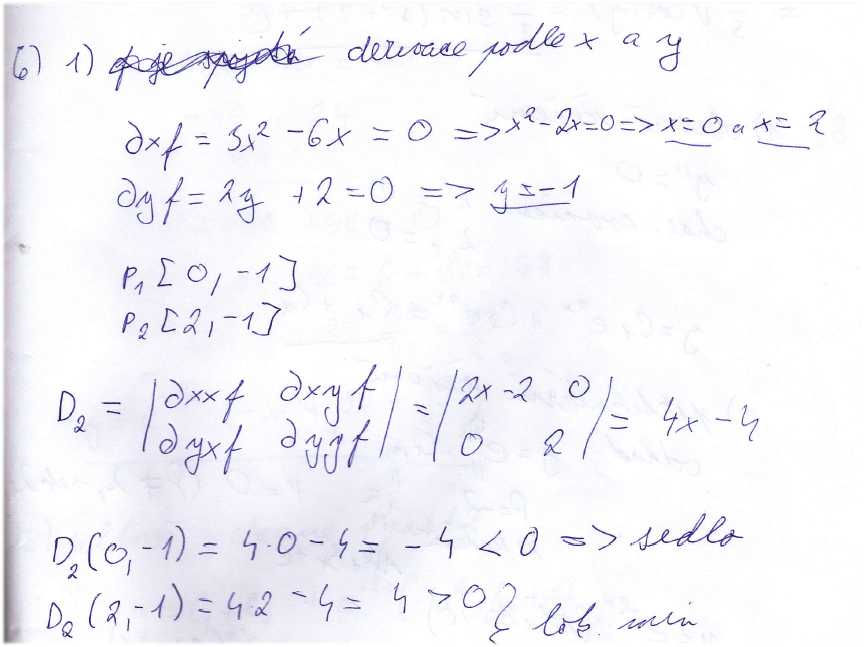 6) 1) derivace podle x a y
∂xf = 3x² - 6x = 0 => x² - 2x = 0 => x = 0 a x = 2
∂yf = 2y + 2 = 0 => y = -1
P₁ [0, -1]
P₂ [2, -1]
D₂ = |∂xxf ∂xyf| = |2x - 2 0| = 4x - 4
|∂yxf ∂yyf| |0 2|
D₂(0, -1) = 4·0 - 4 = -4 < 0 => sedlo
D₂(2, -1) = 4·2 - 4 = 4 > 0 } lok. min